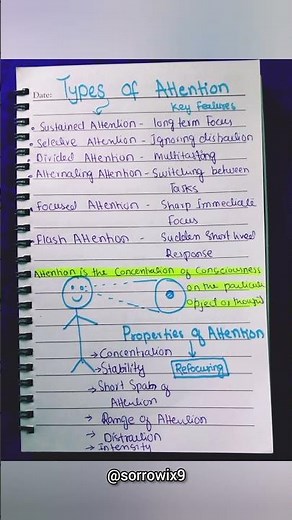 Date:
Types of Attention
Key Features
• Sustained Attention - long term Focus
• Selective Attention - Ignoring distraction
Divided Attention - Multitasking
Alternating Attention - Switching between
Tasks
Focused Attention - Sharp Immediate
Focus
Flash Attention - Sudden Short lived
Response
Attention is the Concentration of Consciousness
on the particular
object or thought
Properties of Attention
→ Concentration
→ Stability
Refocusing
→ Short Span of
Attention
→ Range of Attention
→ Distraction
→ Intensity
@sorrowix9